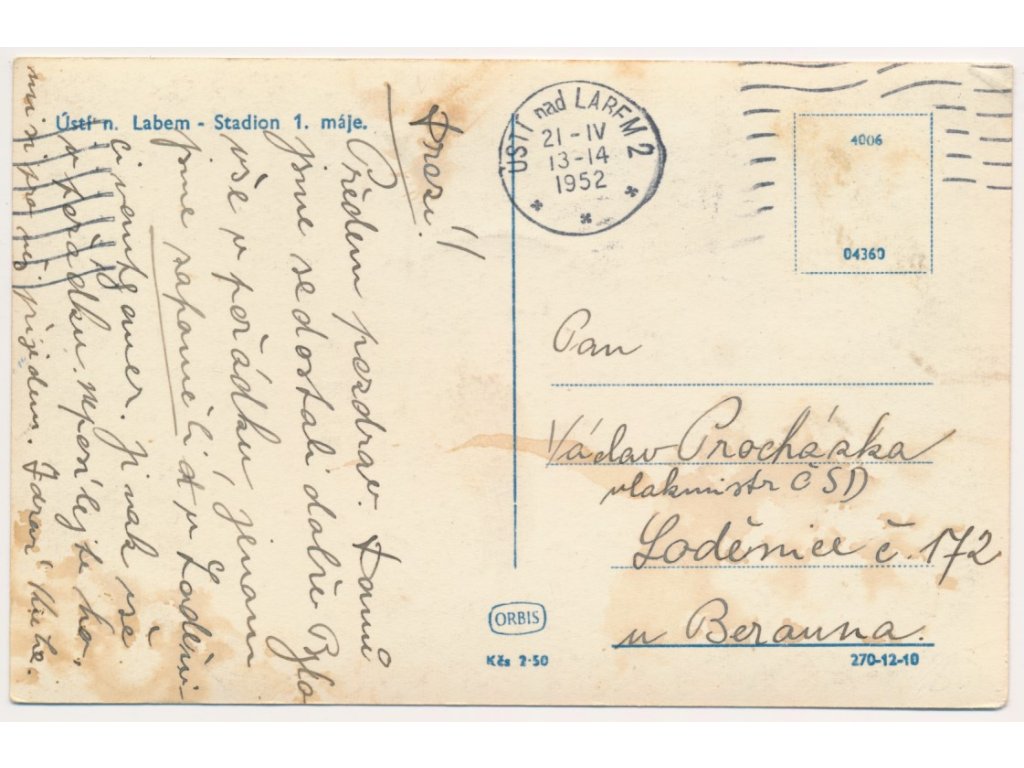 Ústí n. Labem - Stadion 1. máje.
Drazí!
Předem pozdrav. Domů
jsme se dostali dobře Bylo
vše v pořádku, jenom
jsme zapoměli dt v Loděni-
ci
Jinak vše
v pořádku.
mi
pro něj přijedem. Zdraví
ÚSTÍ nad LABEM 2
21-IV
13-14
1952
4006
04360
Pan
Václav Procházka
vlakmistr ČSD
Loděnice č. 172
u Berouna.
ORBIS
Kčs 2·50
270-12-10